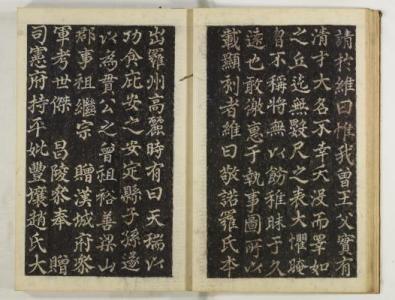 請於維曰惟我曾王父實有
清才大名不幸夭没而睪如
之丘迄無數尺之表大懼晻
曶不稱將無以飭稚昧于久
遠也敢徼惠于執事圖所以
載顯刻者維曰敬諾羅氏本
出羅州高麗時有曰天瑞以
功食庇安之安定縣子孫遂
以爲貫公之曾祖裕善山
郡事祖繼宗 贈漢城府參
軍考世傑 昌陵參奉 贈
司憲府持平妣豐壤趙氏大